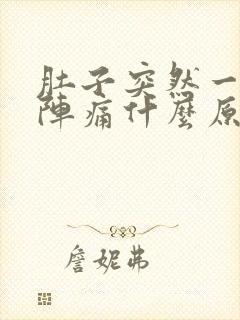 肚子突然一
陣痛什麼原
詹妮弗